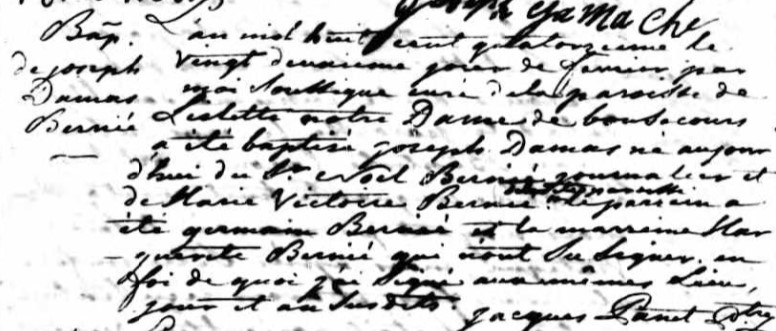 Joseph Gamache
Bap. L'an mil huit cent quatorzieme le
de joseph vingt deuxieme jour de fevrier par
Damas moi soussigne curé de la paroisse de
Bernié Lislette notre Dame de bonsecours
a été baptisé joseph Damas né aujour
d'hui du Sr. Noel Bernié journalier et
de Marie Victoire Bernié le parrain a
été germain Bernié et la marreine Mar
guerite Bernié qui n'ont su signer en
foi de quoi j'ai signé aux mêmes lieu,
jour et an susdits jacques Panet Ptre